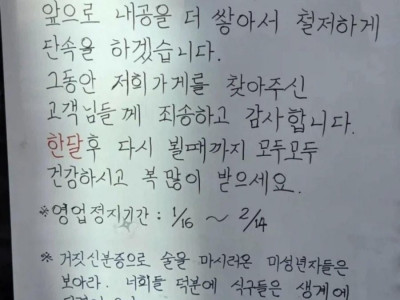 앞으로 내공을 더 쌓아서 철저하게
단속을 하겠습니다.
그동안 저희가게를 찾아주신
고객님들께 죄송하고 감사합니다.
한달후 다시 볼때까지 모두모두
건강하시고 복 많이 받으세요.
※영업정지기간 : 1/16 ~ 2/14
※ 거짓신분증으로 술을 마시러온 미성년자들은
보아라. 너희들 덕분에 식구들은 생계에